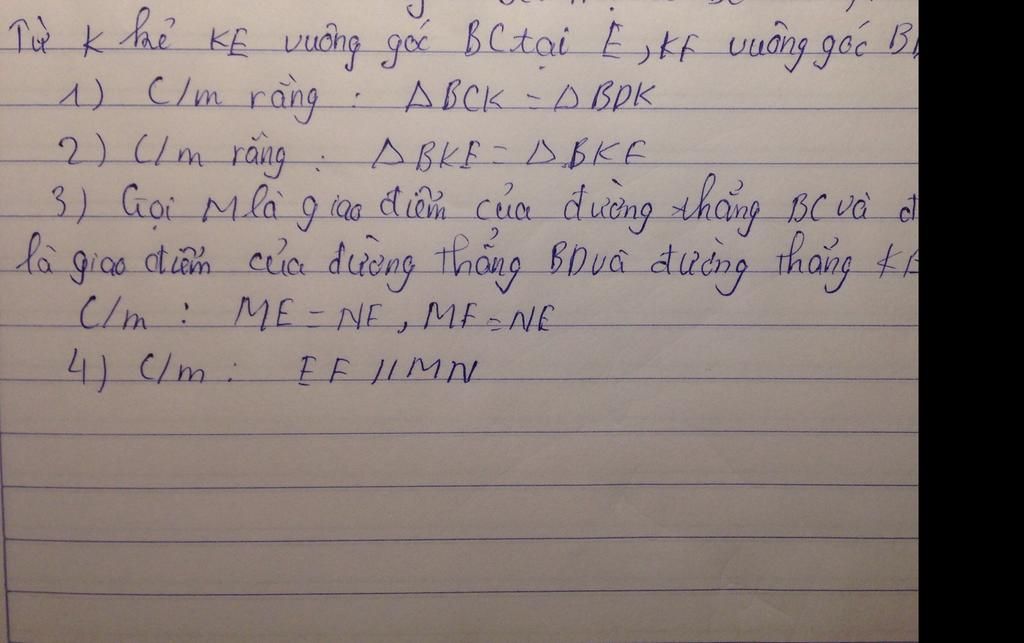 Từ K kẻ KE vuông góc BC tại E, KF vuông góc
1) C/m rằng : ΔBCK = ΔBDK
2) C/m rằng : ΔBKE = ΔBKF
3) Gọi M là giao điểm của đường thẳng BC và đ
là giao điểm của đường thẳng BD và đường thẳng KE
C/m : ME = NF, MF = NE
4) C/m : EF // MN